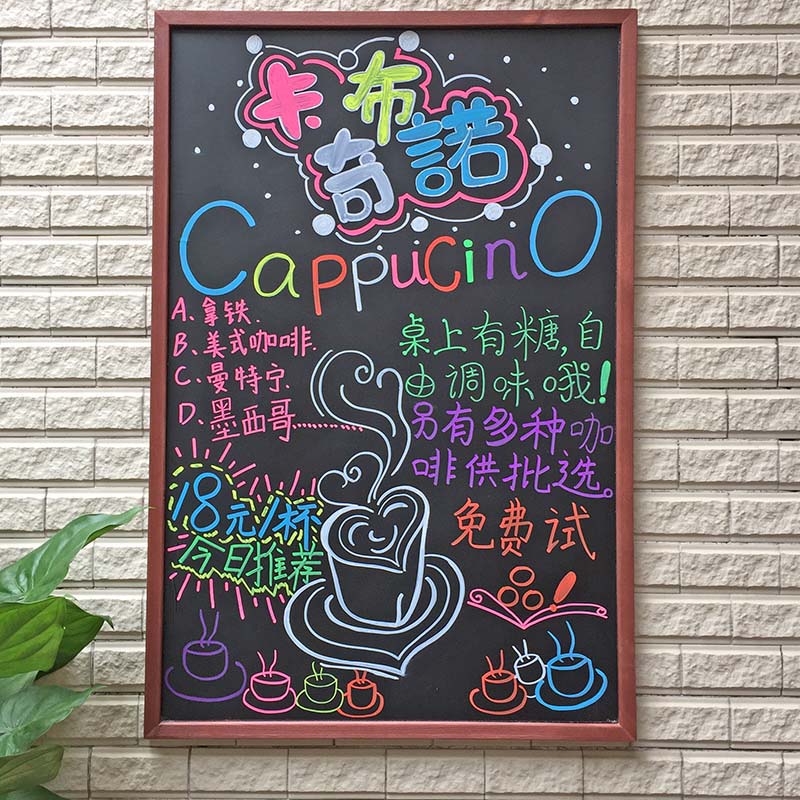 卡布
奇諾
CappucinO
A、拿铁.
B、美式咖啡.
C、曼特宁.
D、墨西哥………
18元/杯
今日推荐
桌上有糖,自
由调味哦!
另有多种咖
啡供批选。
免费试
品!